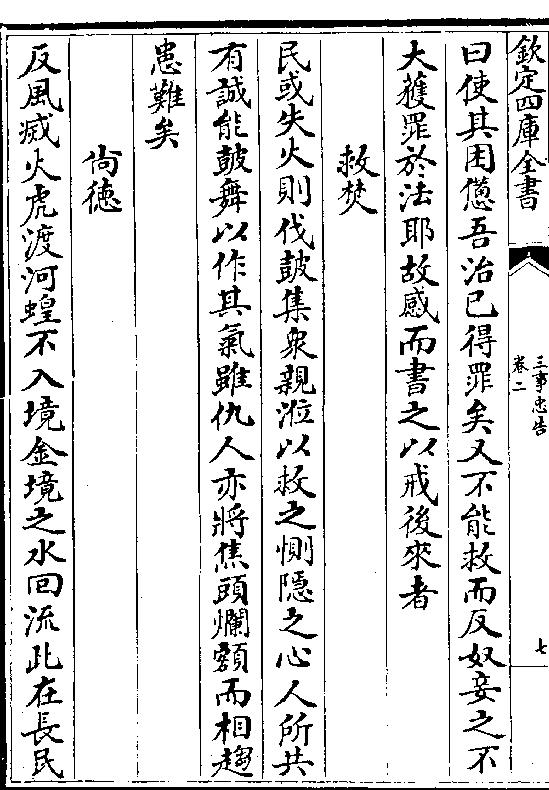 欽定四庫全書
三事忠告
卷二
七
曰使其困憊吾治已得罪矣又不能救而反奴妾之不
大獲罪於法耶故感而書之以戒後來者
救焚
民或失火則伐鼓集衆親涖以救之惻隱之心人所共
有誠能鼓舞以作其氣雖仇人亦將焦頭爛額而相趨
患難矣
尚德
反風滅火虎渡河蝗不入境金境之水回流此在長民